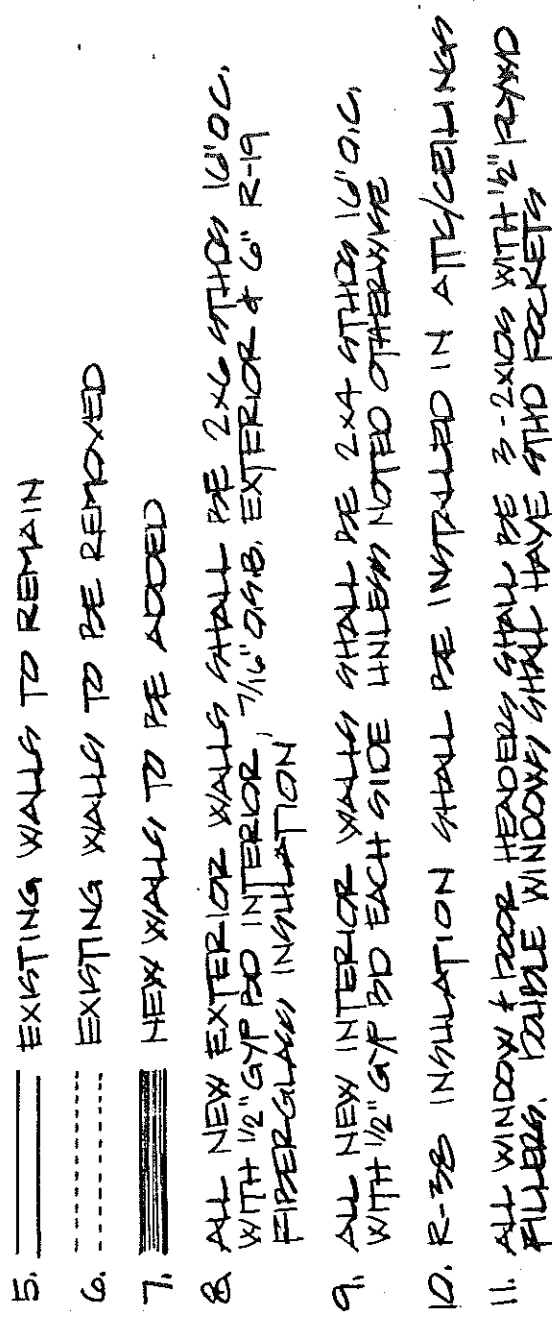 5. EXISTING WALLS TO REMAIN
6. EXISTING WALLS TO BE REMOVED
7. NEW WALLS TO BE ADDED
8. ALL NEW EXTERIOR WALLS SHALL BE 2x6 STUDS 16" O.C.
WITH 1/2" GYP BD INTERIOR, 7/16" O.S.B. EXTERIOR & 6" R-19
FIBERGLASS INSULATION
9. ALL NEW INTERIOR WALLS SHALL BE 2x4 STUDS 16" O.C.
WITH 1/2" GYP BD EACH SIDE UNLESS NOTED OTHERWISE
10. R-38 INSULATION SHALL BE INSTALLED IN ATTIC/CEILINGS
11. ALL WINDOW & DOOR HEADERS SHALL BE 3-2x10S WITH 1/2" PLYWD
FILLERS. DOUBLE WINDOWS SHALL HAVE STUD POCKETS